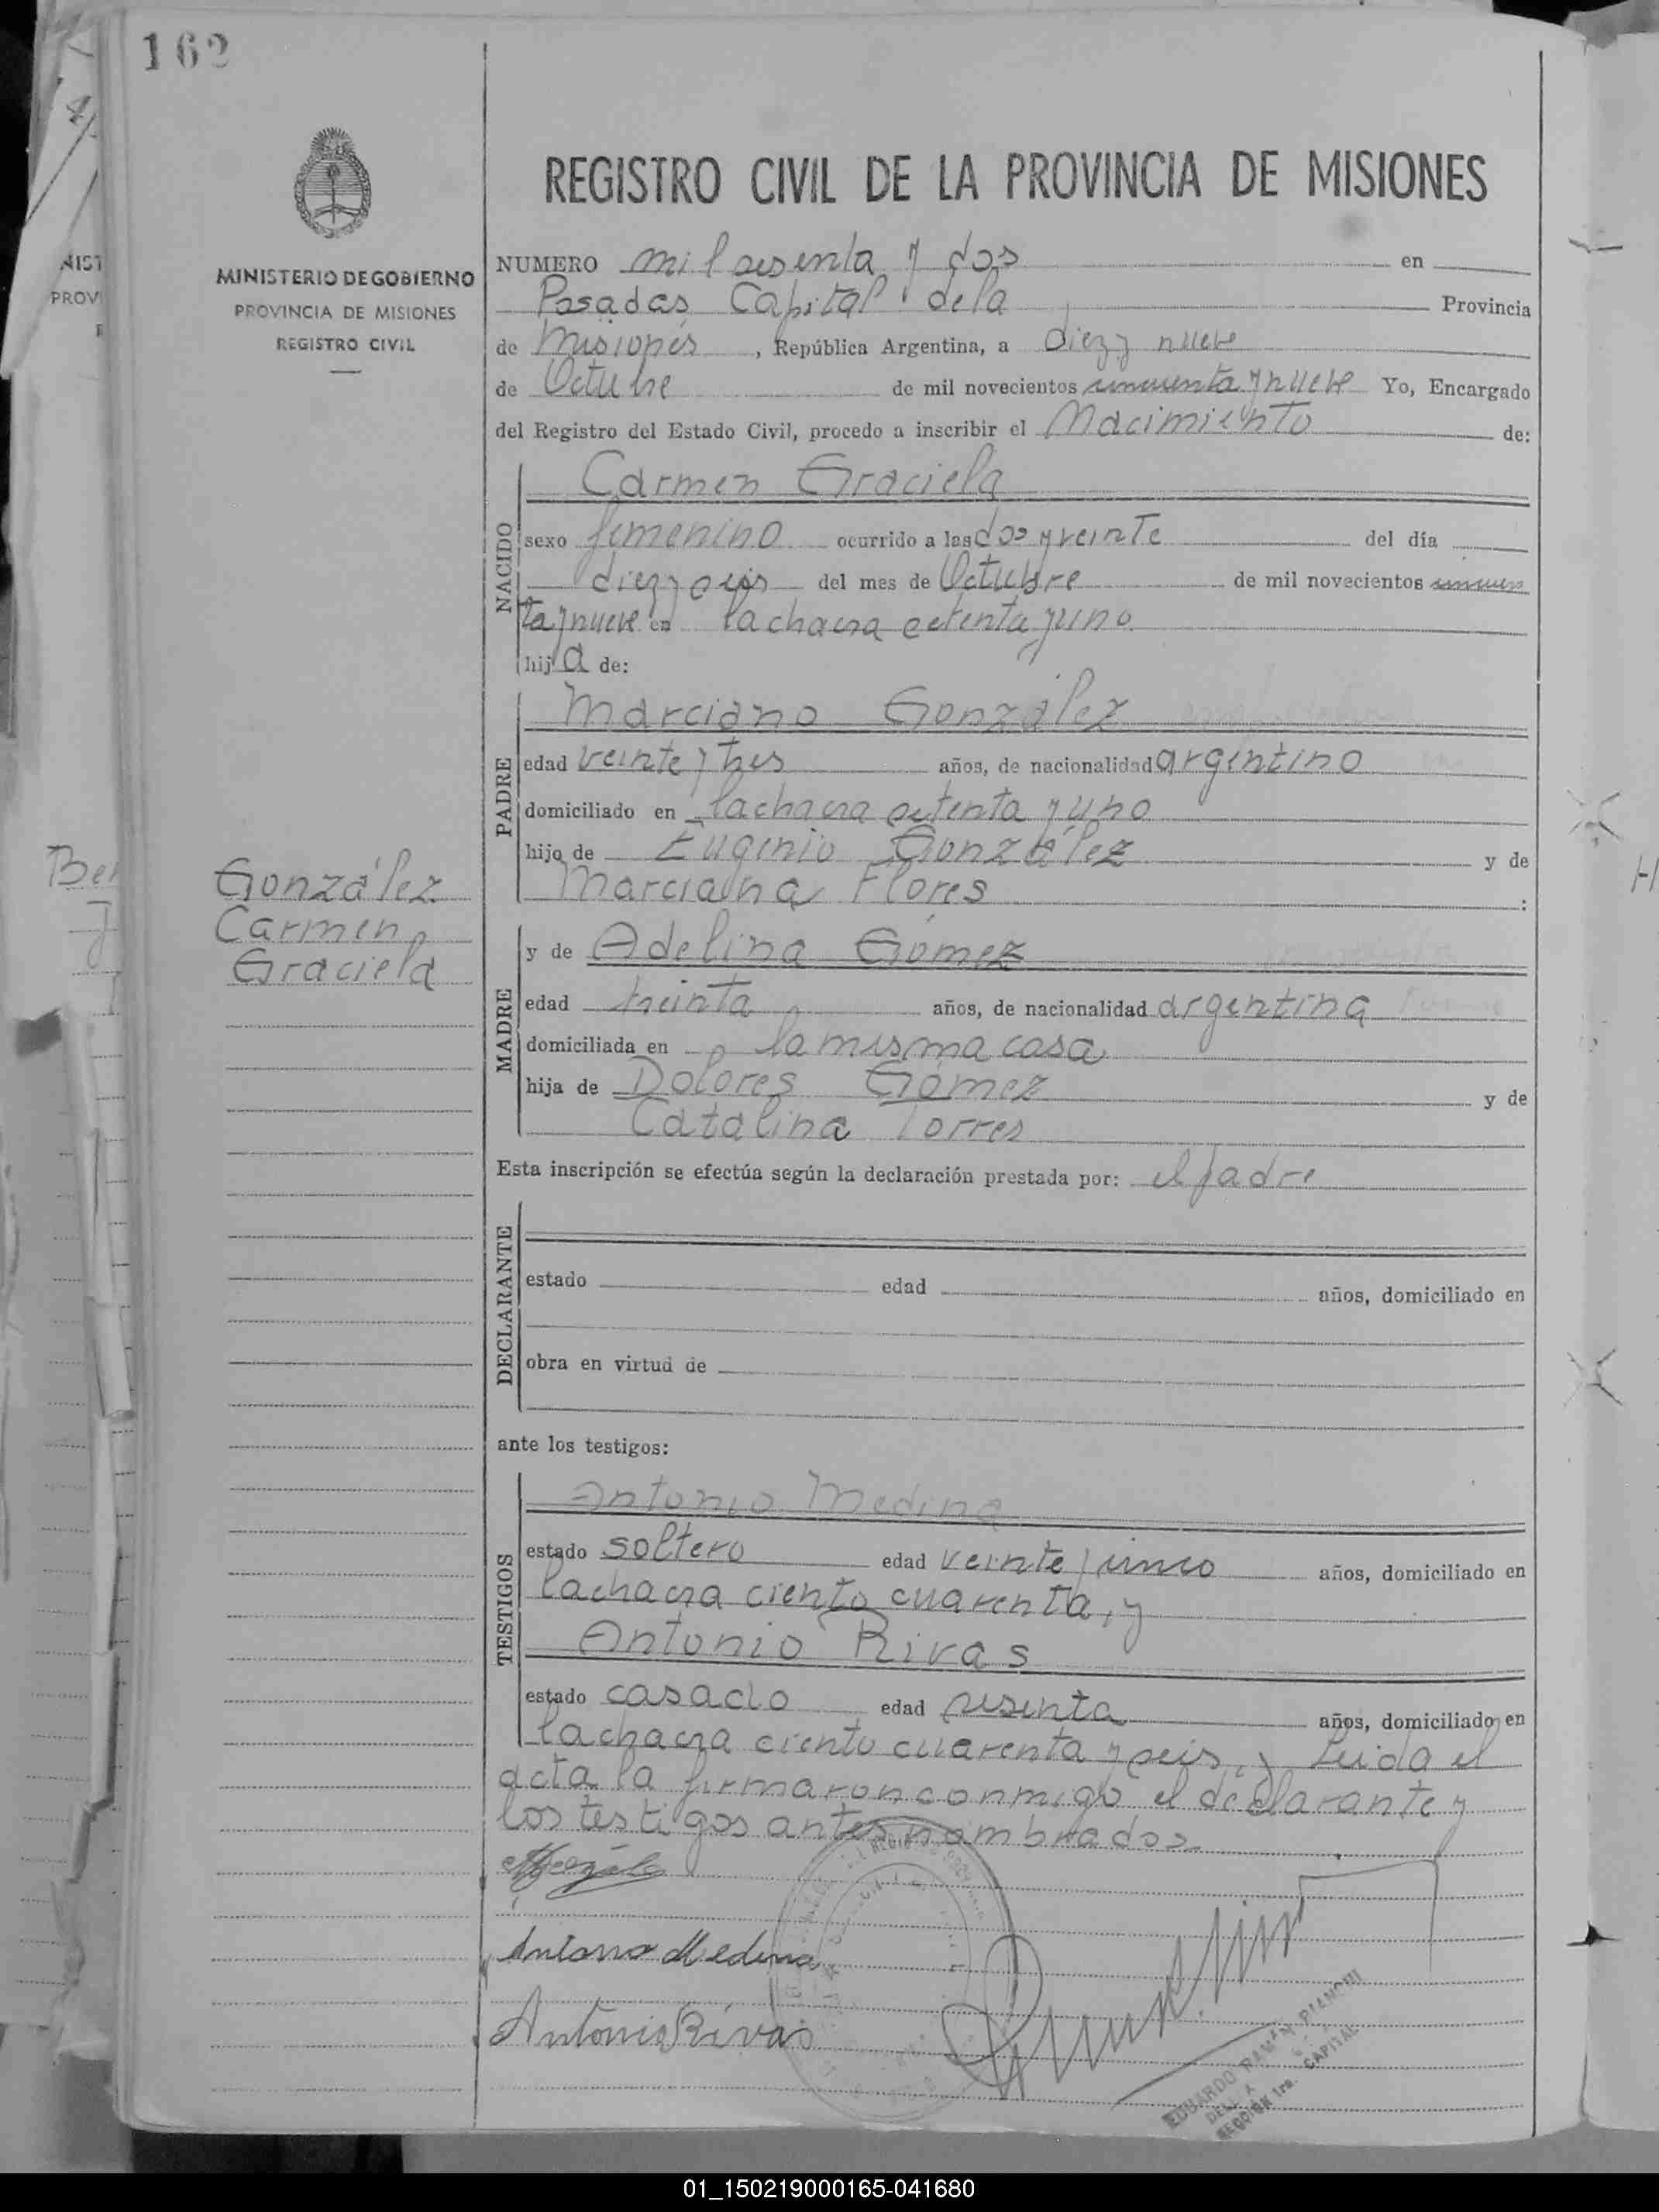 162
MINISTERIO DE GOBIERNO
PROVINCIA DE MISIONES
REGISTRO CIVIL
REGISTRO CIVIL DE LA PROVINCIA DE MISIONES
NUMERO mil sesenta y dos en
Posadas Capital de la Provincia
de Misiones, República Argentina, a Diez y nueve
de Octubre de mil novecientos cincuenta y nueve Yo, Encargado
del Registro del Estado Civil, procedo a inscribir el Nacimiento de:
NACIDO
Carmen Graciela
sexo femenino ocurrido a las dos y veinte del día
diez y seis del mes de Octubre de mil novecientos cincuen
ta y nueve en la chacra setenta y uno
hija de:
PADRE
Marciano González
edad veinte y tres años, de nacionalidad argentino
domiciliado en la chacra setenta y uno
hijo de Eugenio González y de
Marciana Flores :
González
Carmen
Graciela
MADRE
y de Adelina Gómez
edad treinta años, de nacionalidad argentina
domiciliada en la misma casa
hija de Dolores Gómez y de
Catalina Torres
Esta inscripción se efectúa según la declaración prestada por: el padre
DECLARANTE
estado edad años, domiciliado en
obra en virtud de
ante los testigos:
TESTIGOS
Antonio Medina
estado soltero edad veinte y cinco años, domiciliado en
la chacra ciento cuarenta, y
Antonio Rivas
estado casado edad sesenta años, domiciliado en
la chacra ciento cuarenta y seis, Leida el
acta la firmaron conmigo el declarante y
los testigos antes nombrados.
Antonio Medina
Antonio Rivas
EDUARDO RAMÓN BIANCHI
SECCION 1ra. CAPITAL
01_150219000165-041680